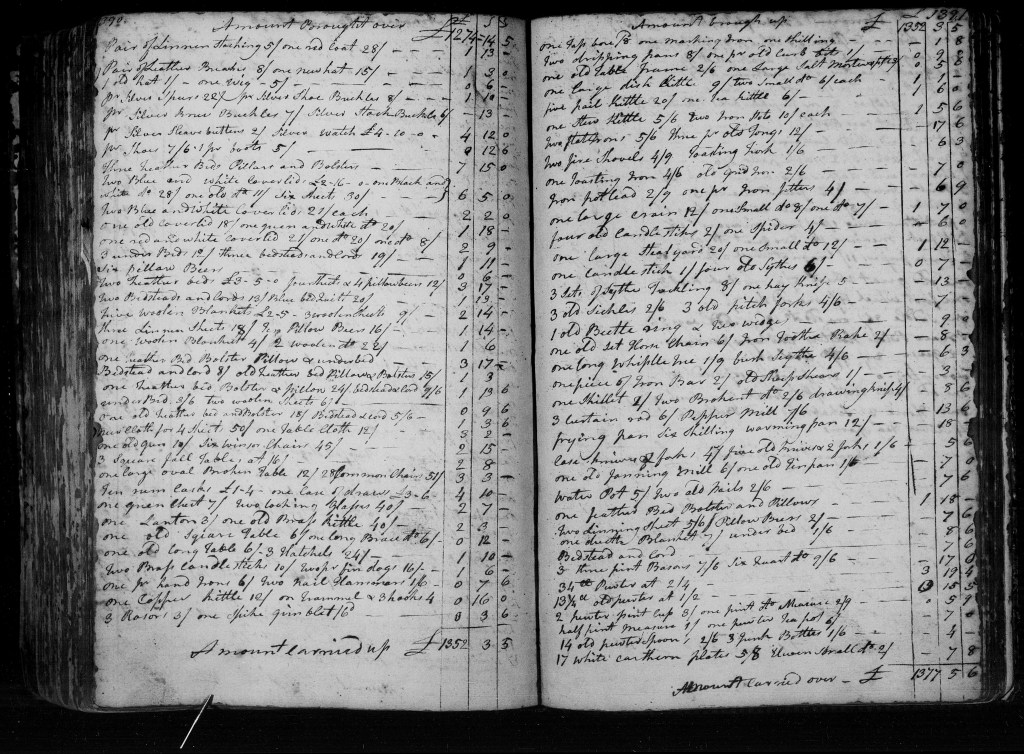 392
Amount Brought over £ 1274 - 14 5
Pair of Linnen Stocking 5/ one red Coat 28/ - - 1 13 -
Pair of Leather Breeches 8/ one new hat 15/ - 1 3 0
old Hat 1/- one Wig 5/ - - 0 6 -
pr Silver Spurs 22/ pr Silver Shoe Buckles 8/ - - 1 10 -
pr Silver Knee Buckles 7/ Silver Stock Buckle 6/ - 13 -
pr Silver Sleave buttons 2/ Silver watch £4-10-0 4 12 0
pr Shoes 7/6 1 pr boots 5/ - 0 12 6
three Feather Beds Pillars and Bolsters 7 15 0
two Blue and White Coverlids £2-16-0 one Black and
White do 28/ one old do 11/ Six Sheets 30/ 6 5 0
two Blue and White Coverlids 21/ each 2 2 0
one old Coverlid 18/ one green and White do 20/ 1 18 -
one red and white Coverlid 21/ one do 20/ one do 8/ 2 9 -
3 under Beds 12/ three bedsteads and Cord 19/ - 1 11 -
Six pillow Beers - 0 6 -
two Feather beds £3-5-0 four sheets & 4 pillowbeers 12/ 3 17 -
two Bedsteads and Cords 13/ Blue bed Quilt 20/ 1 13 -
five woolen Blankets £2-5- 3 woolen sheets 9/ - 2 14 -
three Linnen Sheets 18/ Six Pillow Beers 16/ - 1 14 -
one Woolen Blanket 4/ 2 woolen do 22/ 1 6
one Feather Bed Bolster Pillow & underbed 3 17 -
Bedstead and Cord 8/ old Feather bed Pillow & Bolster 15/ 1 3
one Feather bed Bolster & pillow 24/ bedstead & Cord 9/6
underBed 3/6 two woolen Sheets 6/ 13 6
one old Feather bed and Bolster 18/ Bedstead & Cord 5/6 - 0 9 6
new Cloth for 4 Sheets 50/ one Table Cloth 12/ 1 3 6
one old Gun 10/ Six winsor Chairs 45/ 3 2 -
3 Square fall Tables at 16/ 2 15 -
one large oval Broken Table 12/ 28 Common Chairs 51/ 2 8
ten rum Casks £1-4- one Case of draws £3-6- 3 3 -
one green Chest 7/ two looking Glasses 40/ 4 10 -
one Lanton 3/ one old Brass kittle 40/ - 2 7 -
one old Square Table 6/ one long Bench do 6/ 2 3 -
one old long Table 6/- 3 Hatchels 24/ - 0 12 -
two Brass Candlesticks 10/ two pr fin dogs 16/- 1 10 -
one pr hand Irons 6/ two Rail Hammers 1/6 - 1 6 -
one Copper kittle 12/ on Trammel & 3 hooks 4 0 7 6
3 Rasors 3/ one Spike gimblet /6d 0 16 0
0 3 6
Amount Carried up £ 1352 3 5
1391
Amount brough up £ 1352 3 5
one Tap bore /8 one marking Iron one Shilling - 1 8
two dripping pans 8/ one pr old Curb bits 1/ - 0 9 0
one old Table Frame 2/6 one Large Salt Mortar 0 5 8
one large dish kittle 9/ two Small do 6/ each 1 1 -
five pail Kettle 20/ one Tea kittle 6/ - 1 6 0
one Stew Kittle 5/6 two Iron Pots 10/ each 1 5 6
two flatirons 5/6 three pr old Tongs 12/ - 17 6
two fire Shovels 4/9 Toasting Fork 1/6 6 3
one Toasting Iron 4/6 old grid Iron 2/6 - 7 0
Iron pot lead 2/9 one pr Iron fitters 4/ - 6 9
one large crain 12/ one Small do 8/ one do 7/ - 1 7 0
four old Candlesticks 2/ one Spider 4/ - 6 0
one large Stealyards 20/ one Small do 12/ 1 12 -
one Candlestick 1/ four old Sythes 6/ - 0 7 -
3 Sets of Sythe Tackling 8/ one hay Knife 5 - 13 -
3 old Sickles 2/6 3 old pitch forks 4/6 - 7 -
1 old Beetle ring & two wedges 9 0
one old Set Horse Chain 6/ Iron Tooth Rake 2/ - 8 -
one long Whiplle tree 1/9 bush Scythe 4/6 - 6 3
one piece of Iron Bar 2/ old Sheep Shears 1/ - 3 -
one Skillet 2/ two Broken do 2/6 drawing knife 4/ 8 6
3 Curtain rod 6/ Pepper Mill 7/6 13 6
frying pan Six Shilling warming pan 12/ - 18 -
Case knives & forks 4/ five old knives & 2 forks 1/6 - 5 6
one old fanning Mill 6/ one old Tin pan 1/6 - 7 0
Water Pot 5/ two old Pails 2/6 - 7 6
one Feather Bed Bolster and Pillows 1 18 -
two Linning Sheet 5/6 Pillow Beers 2/ - 7 6
one dutch Blanket 7/ under bed 1/6 8 6
Bedstead and Cord - 7 -
3 three pint Basons 7/6 Six Quart do 9/6 - 17 0
34 lb Puter at 2/4 - 3 19 4
13 1/2 old puter at 1/2 - 0 15 5
2 pewter pint Cup 3/ one pint do Measure 2/9 - 0 5 9
half pint measure 1/ one pewter Tea pot 6/ - 7 0
14 old pewter Spoons 2/6 3 junk Bottles 1/6 - 4 -
17 white Earthern plates 5/8 Eleven Small do 2/ - 7 8
Amount Carried over - £ 1377 5 6